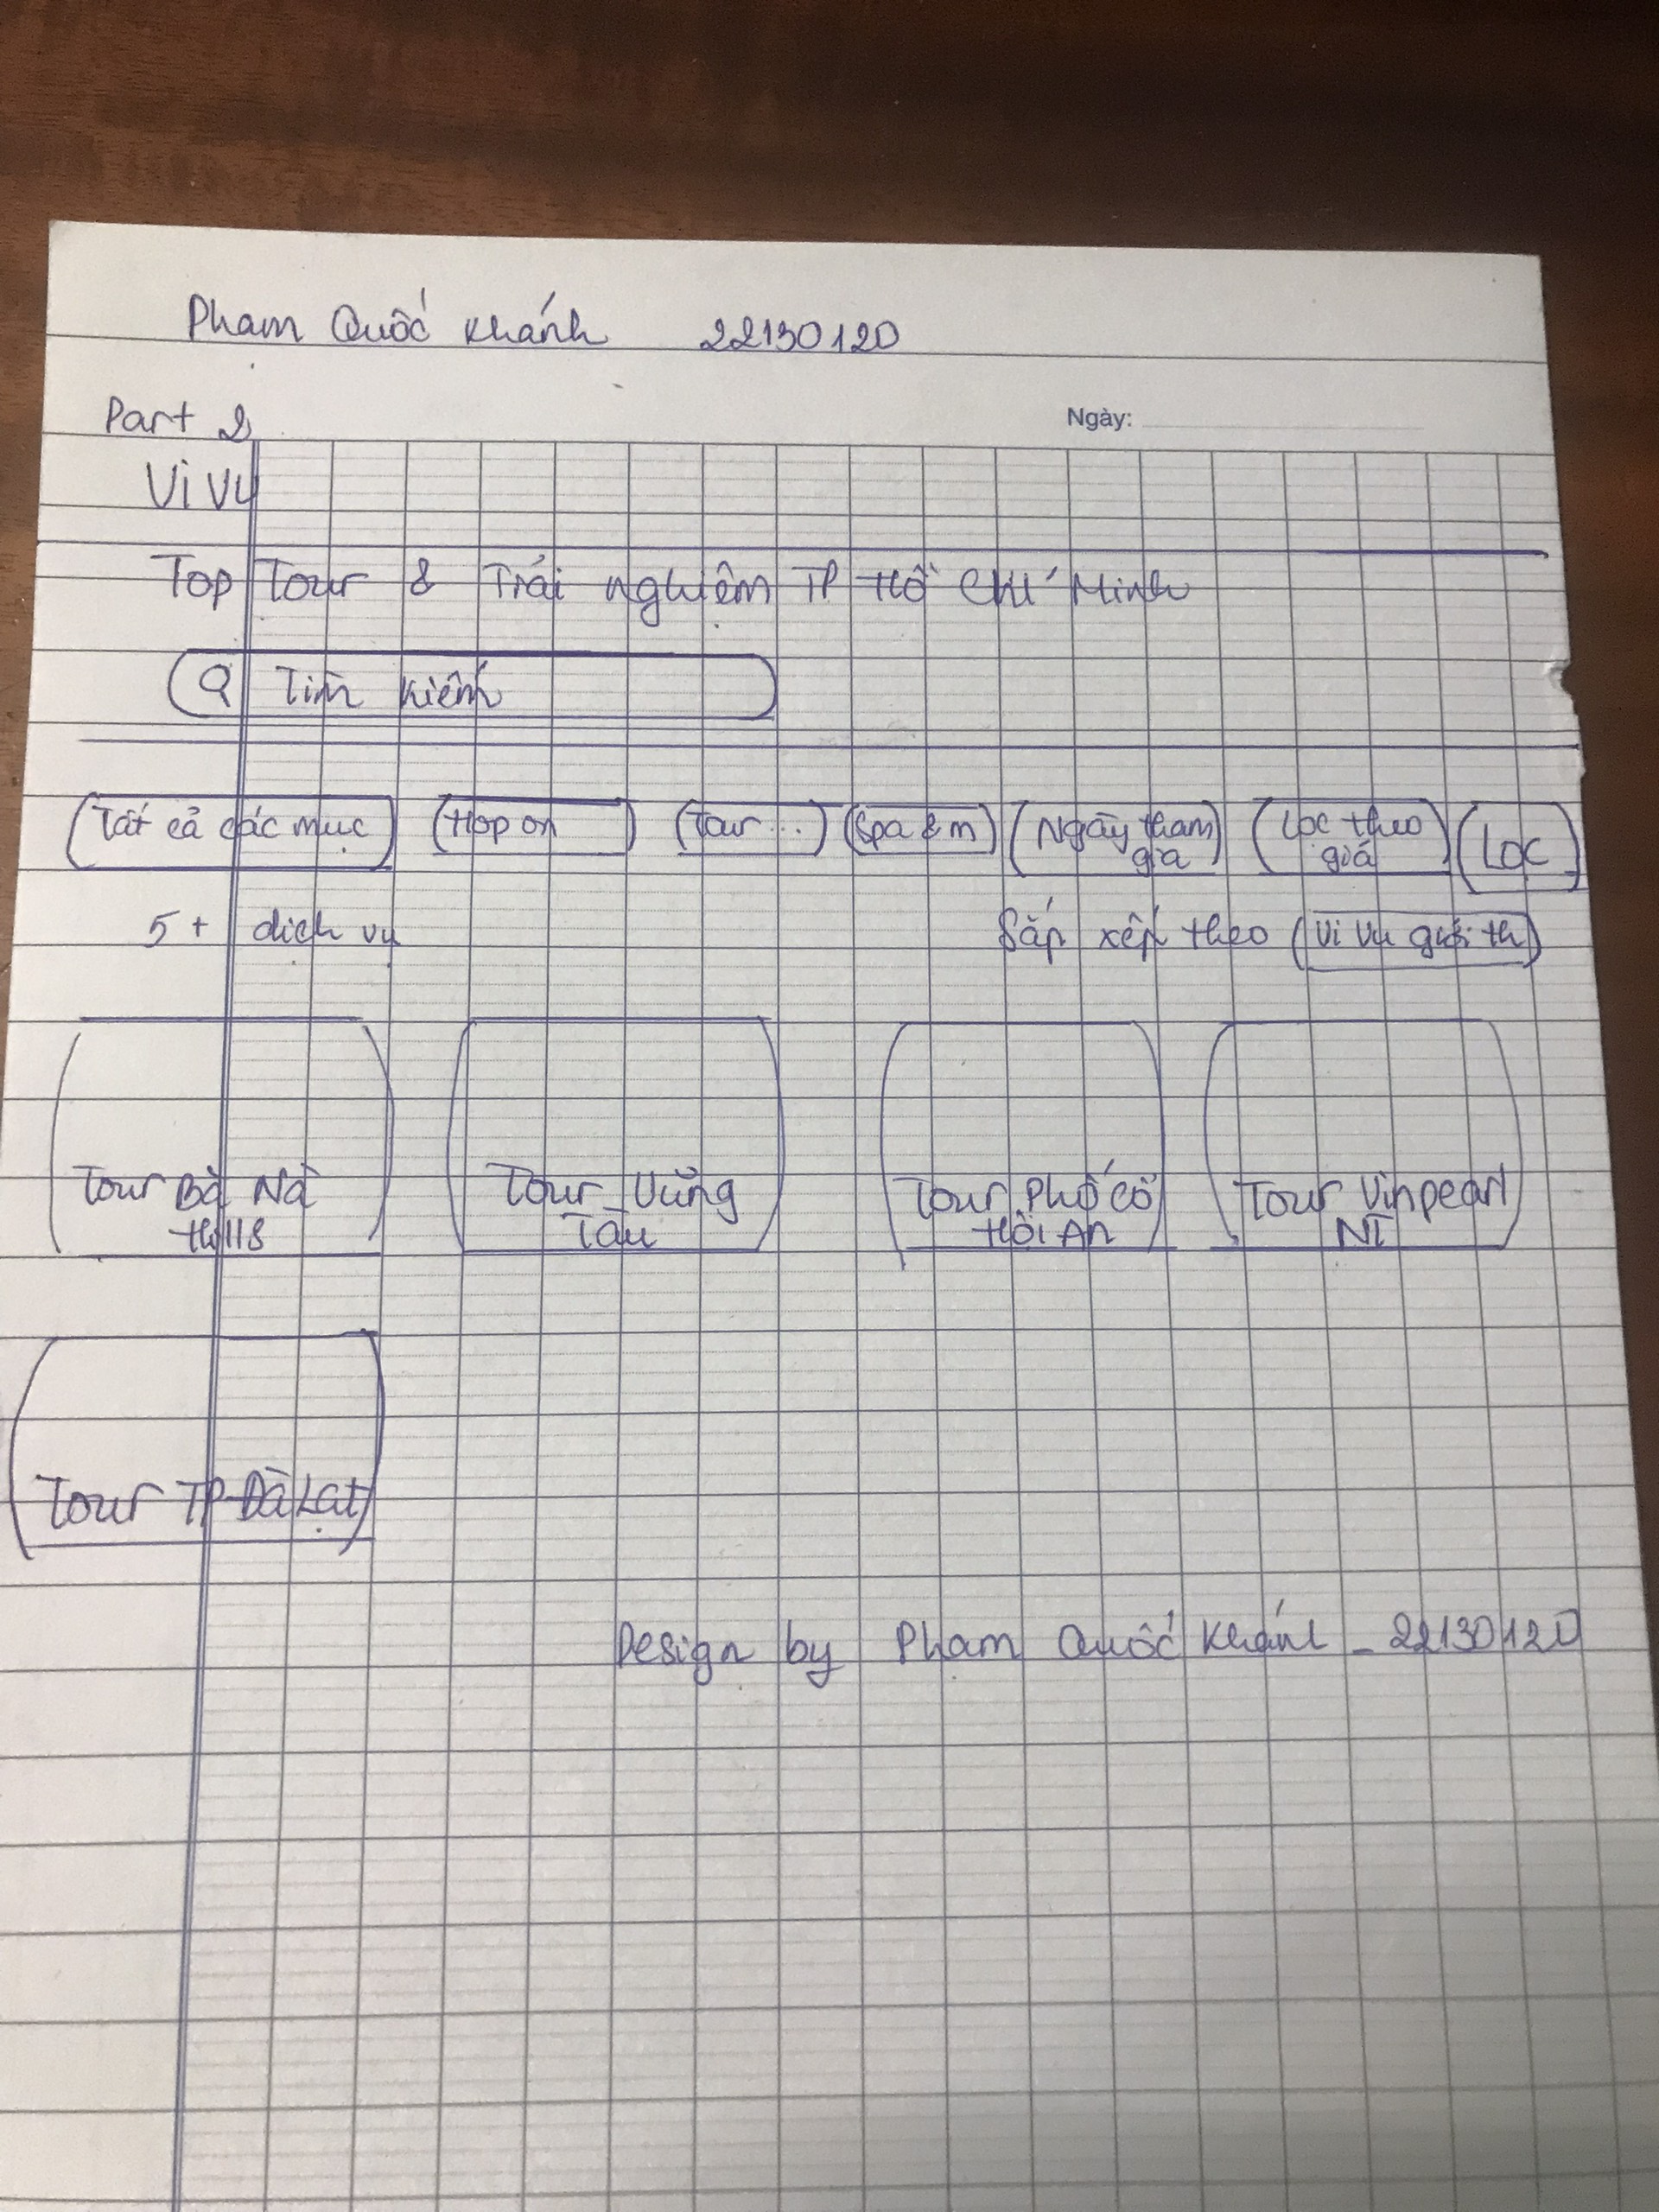 Pham Quốc Khánh 22130120
Part 2
Ngày:
Vi Vu
Top Tour & Trải nghiệm TP Hồ Chí Minh
Tìm kiếm
Tất cả các mục Hop on Tour... Spa & m Ngày tham gia Lọc theo giá Lọc
5+ dịch vụ Sắp xếp theo Vi Vu giới th
Tour Bà Nà Hills
Tour Vũng Tàu
Tour Phố cổ Hội An
Tour Vinpearl NT
Tour TP Đà Lạt
Design by Pham Quốc Khánh - 22130120